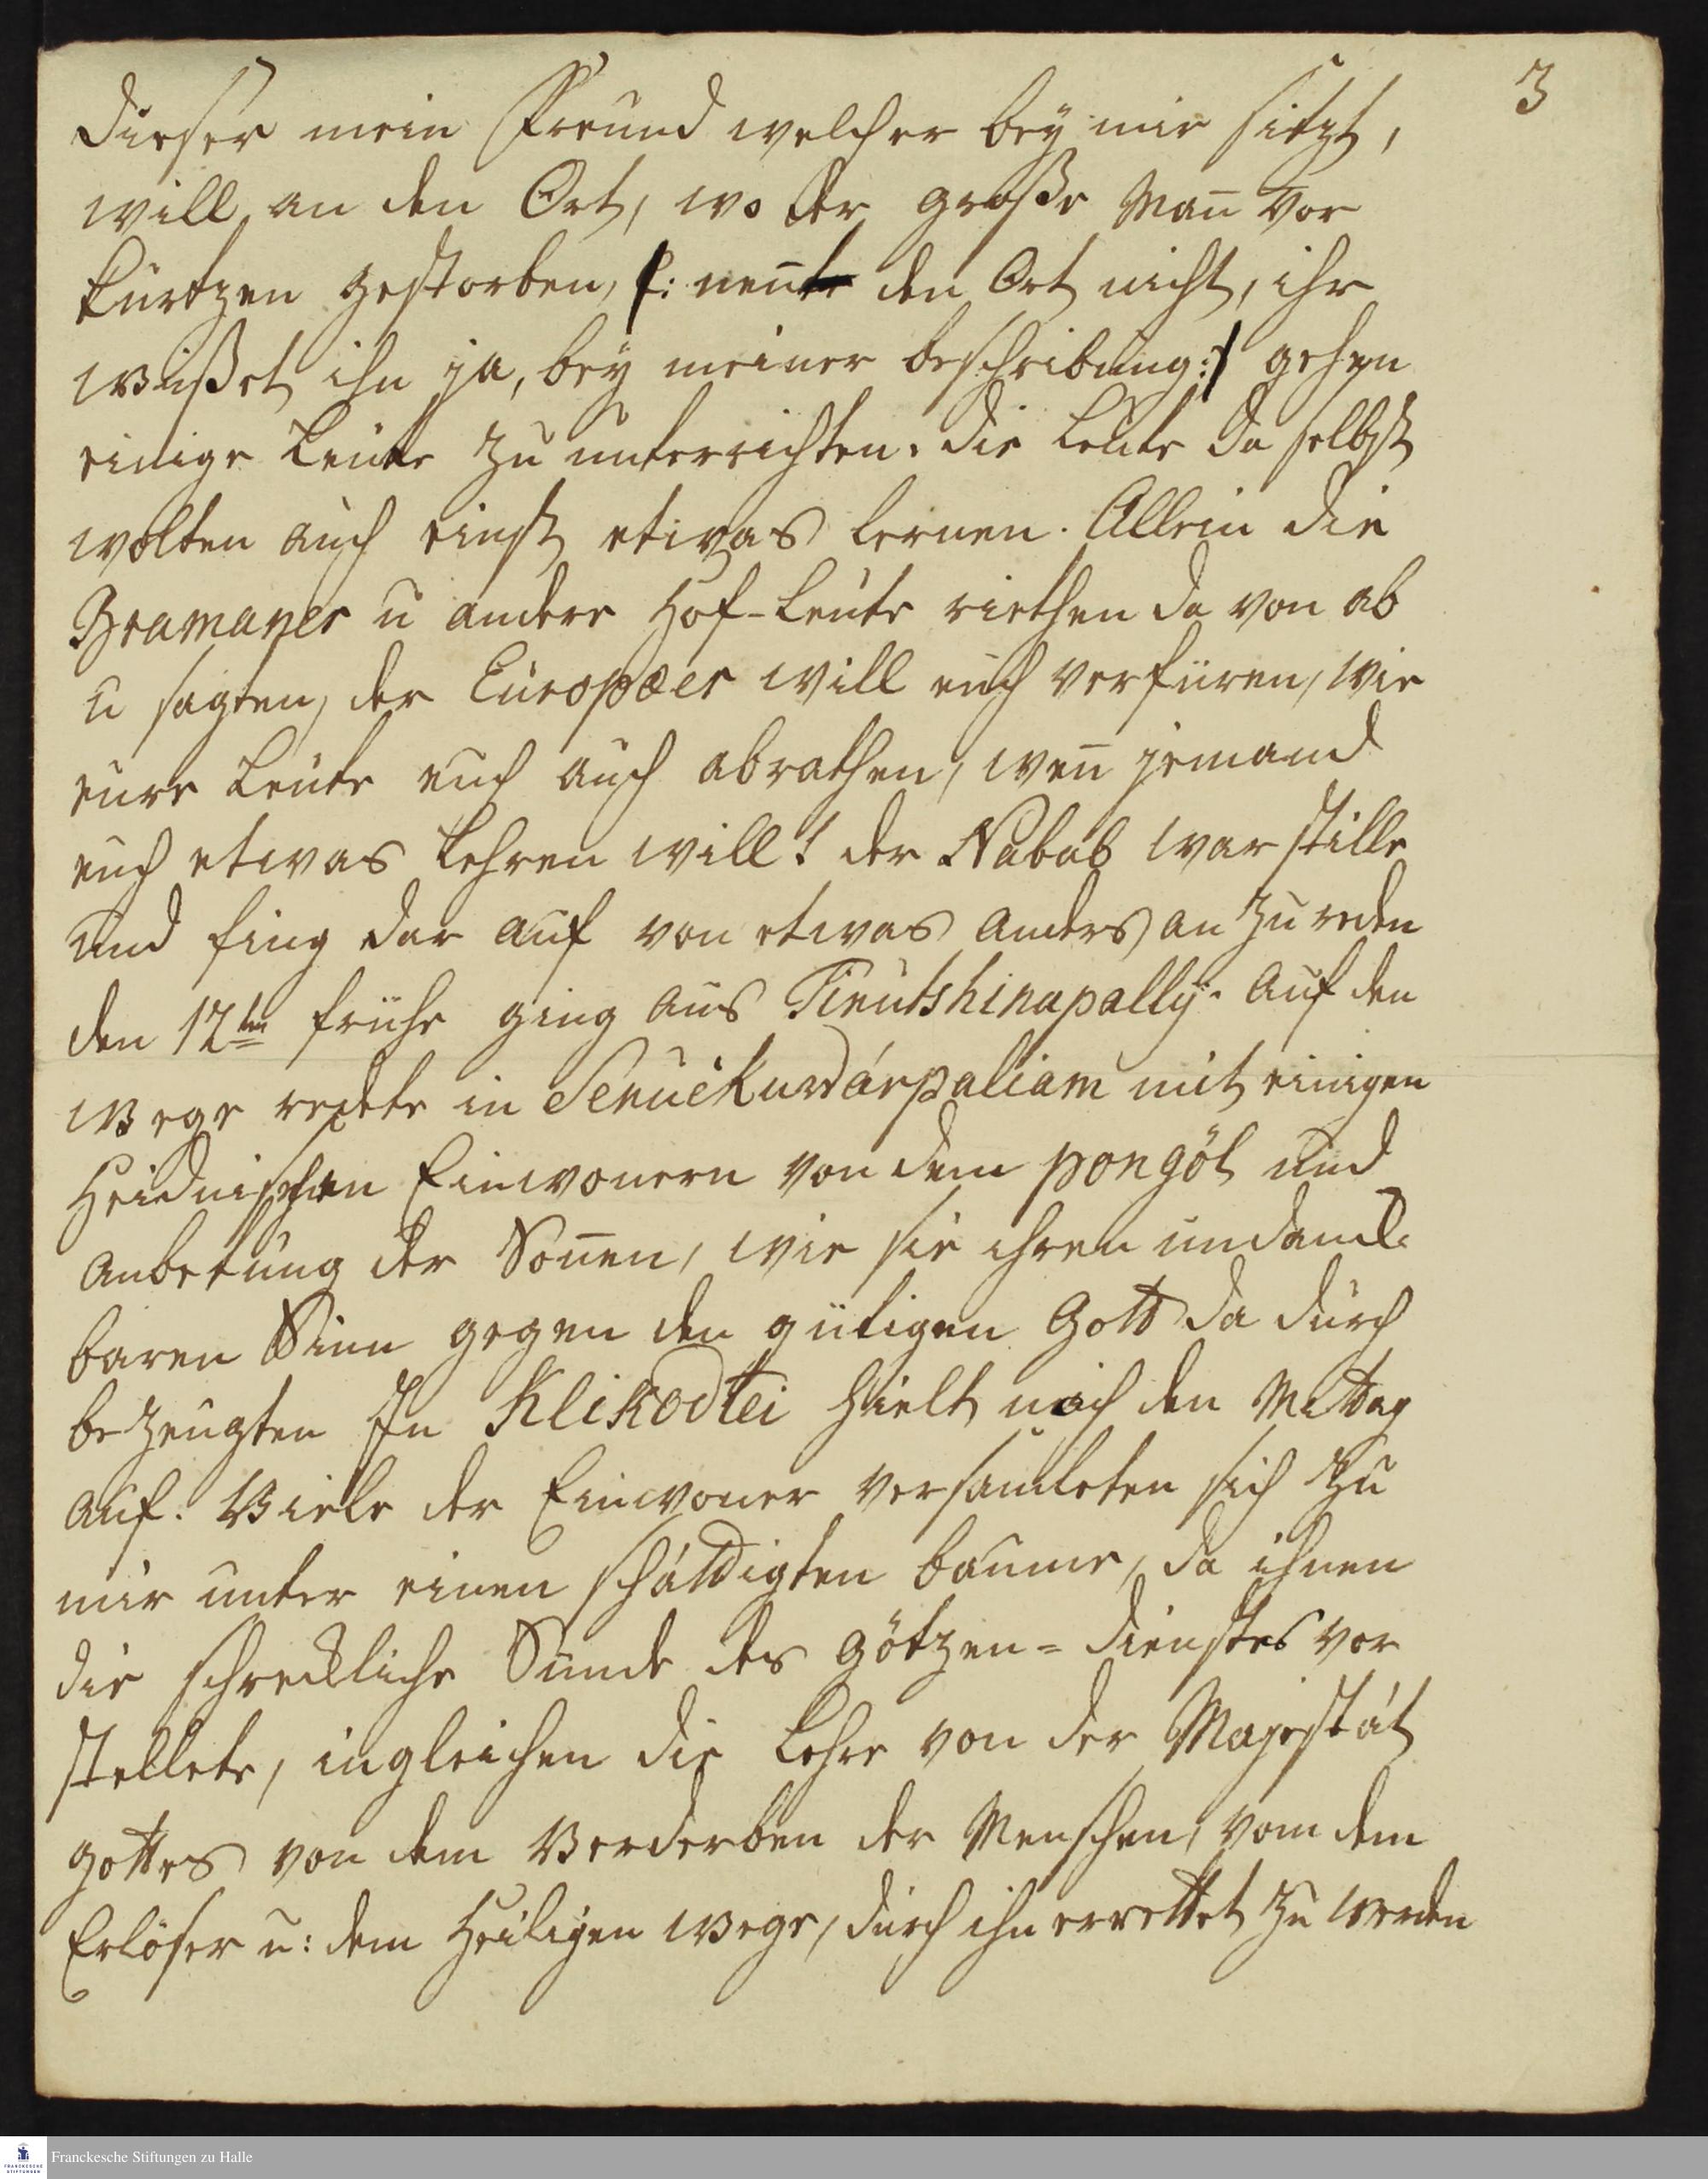 3
Dieser mein Freund welcher bey mir sitzt,
will an den Ort, wo der große Mañ vor
kurtzen gestorben, (: neñte den Ort nicht, ihr
wißet ihn ja, bey meiner beschribung :) gehen
einige Leute zu unterrichten. Die Leute da selbst
wolten auch einst etwas lernen. Allein die
Bramaner u andere Hof-Leute riethen da von ab
u sagten, der Europæer will euch verfüren, wie
eure Leute euch auch abrathen, weñ jemand
euch etwas Lehren will! der Nabab war stille
und fing dar auf von etwas anders an zu reden
den 12ten frühe ging aus Tirutshinapally. Auf den
Wege redete in mit einigen
Heidnischen Einwonern von dem pongöl und
anbetung der Soñen, wie sie ihren undanck-
baren Sinn gegen den gütigen Gott da durch
bezeugten In Klikodtei hielt mich den Mittag
auf. Viele der Einwoner versamleten sich zu
mir unter einen scháttigten baume, da ihnen
die schreckliche Sünde des Götzen-dienstes vor
stellete, ingleichen die Lehre von der Majestát
gottes von dem Verderben der Menschen, vom dem
Erlöser u: dem Heiligen Wege, durch ihn errettet zu werden
Franckesche Stiftungen zu Halle
FRANCKESCHE
STIFTUNGEN